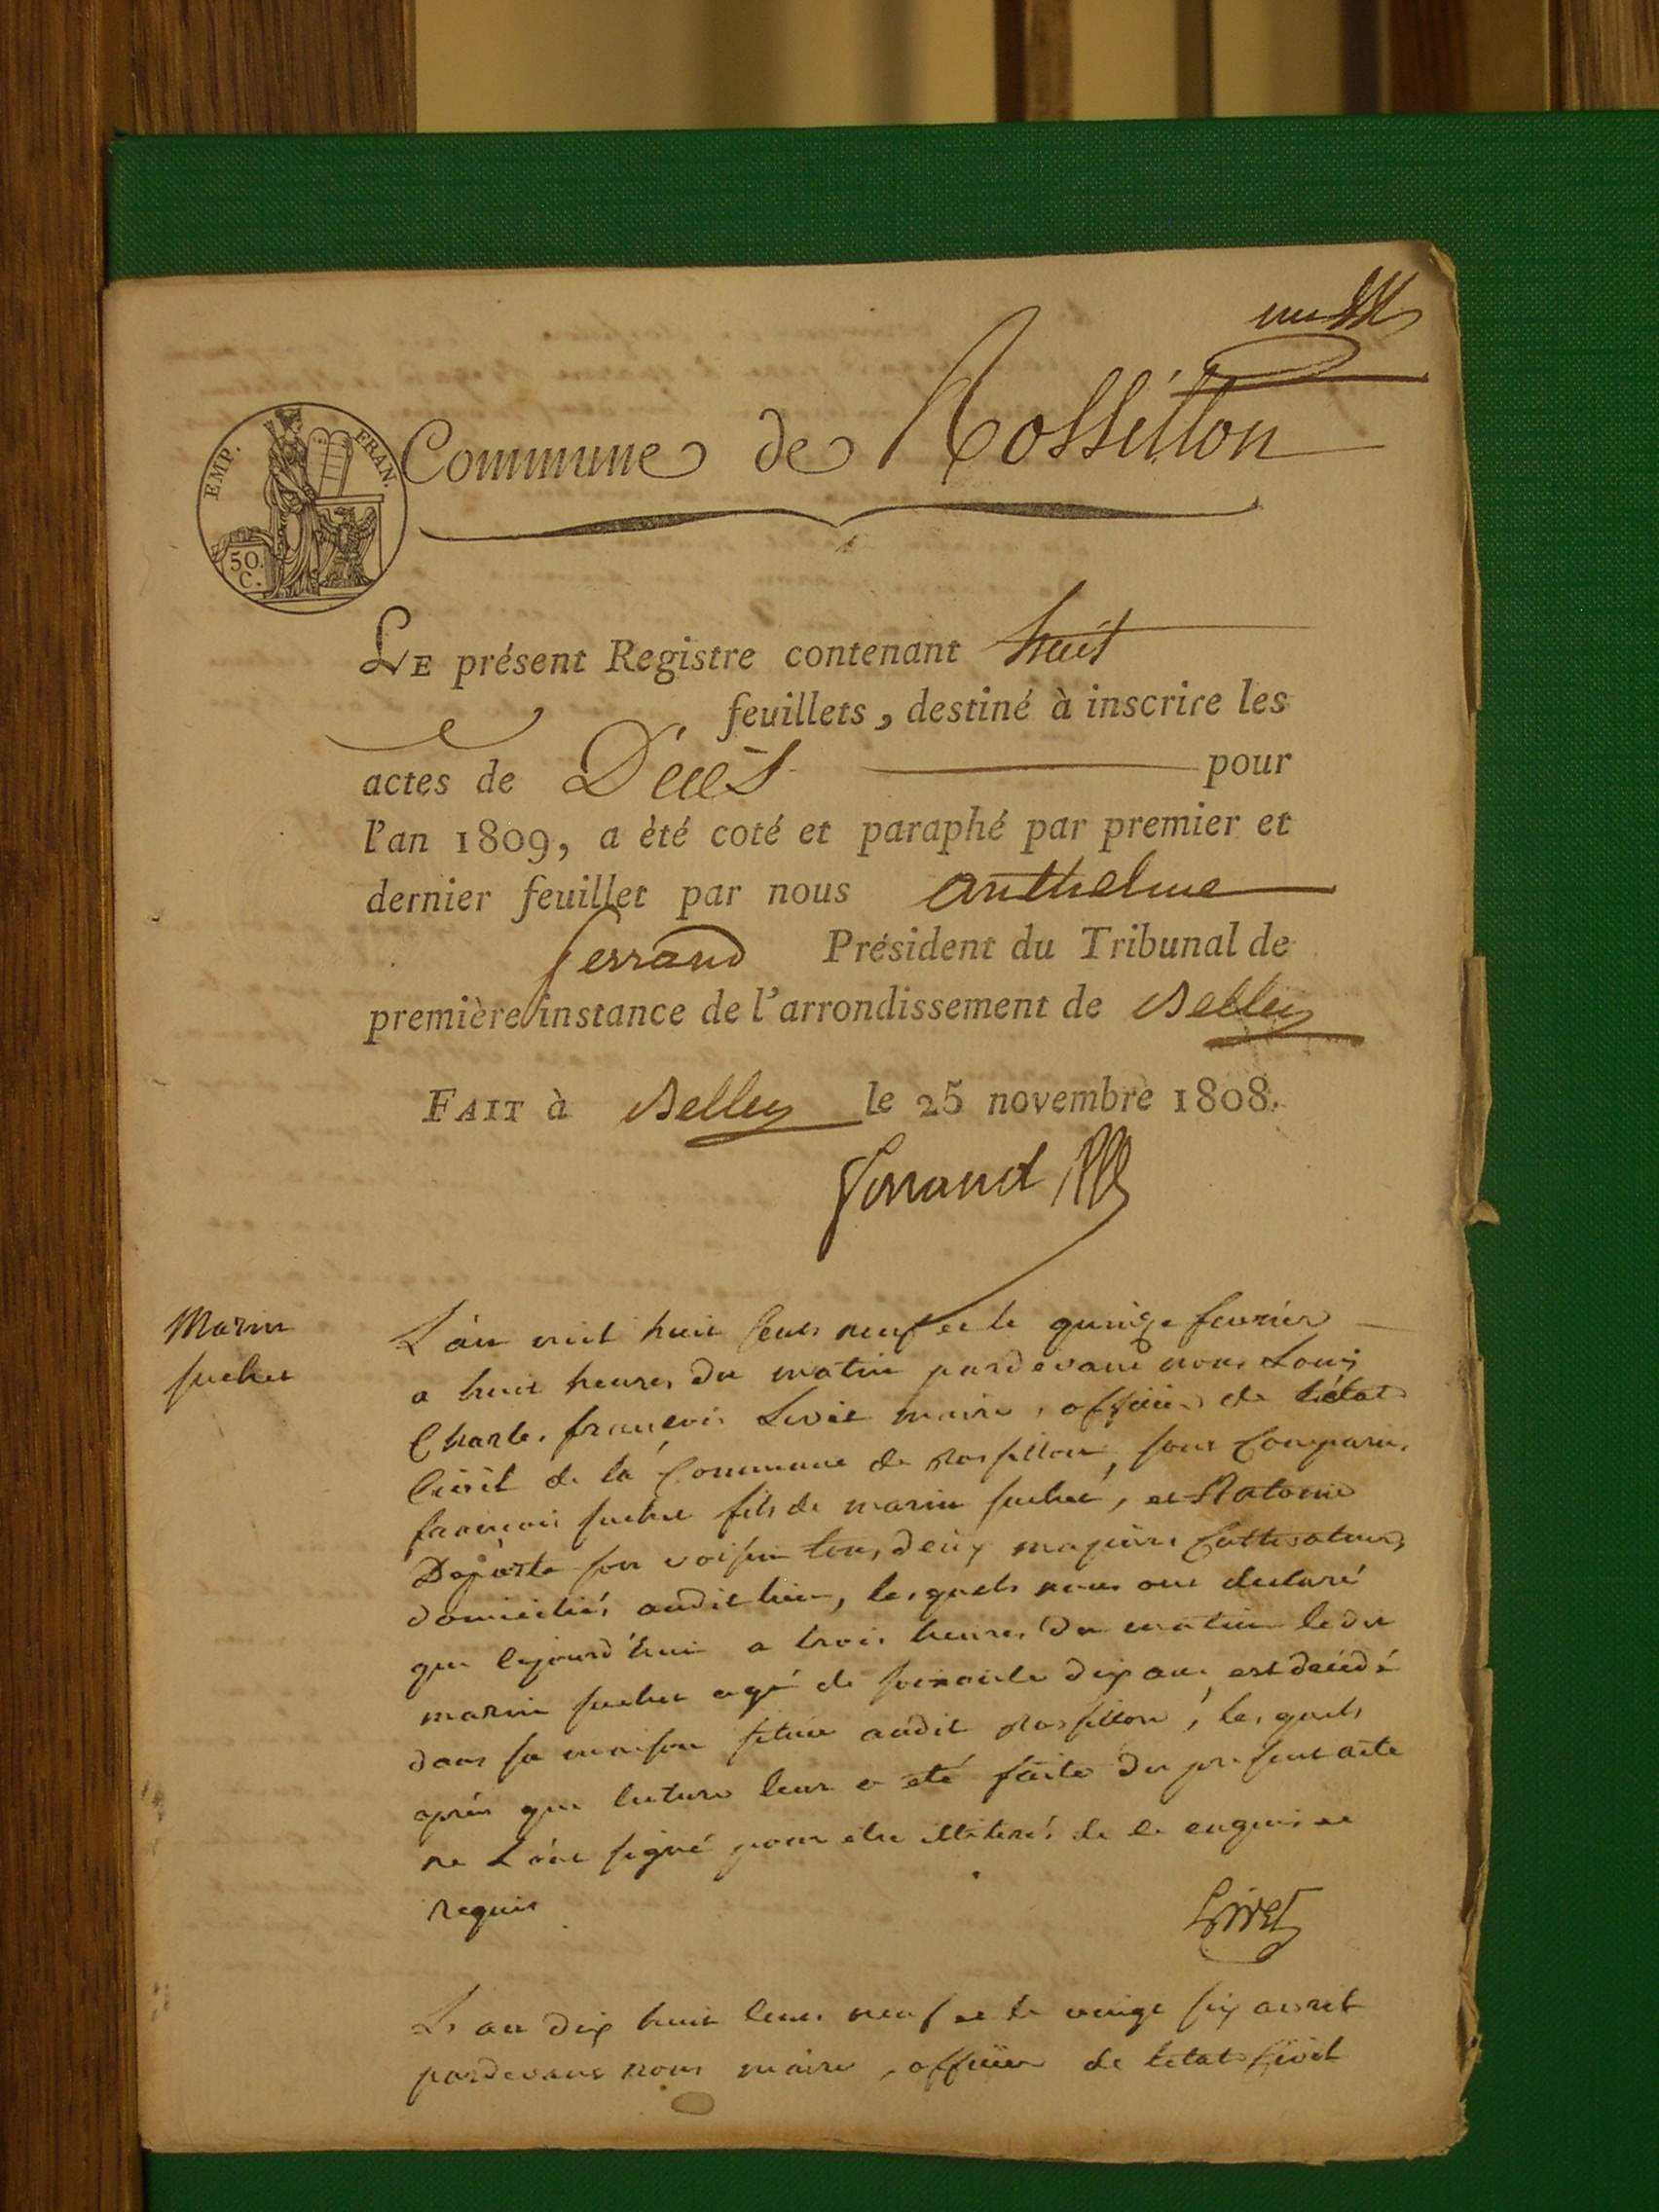 un
EMP. FRAN.
50.
C.
Commune de Rossillon
LE présent Registre contenant huit
feuillets, destiné à inscrire les
actes de Décès pour
l'an 1809, a èté coté et paraphé par premier et
dernier feuillet par nous anthelme
ferrand Président du Tribunal de
première instance de l'arrondissement de Belley
FAIT à Belley le 25 novembre 1808.
ferrand
Marin
suchet
L'an mil huit Cents neuf et le quinze fevrier
a huit heures du matin pardevant nous Louis
Charles françois Livet maire, officier de l'état
Civil de la Commune de Rossillon, sont Comparus
françois suchet fils de marin suchet, et
son voisin tous deux majeurs Cultivateurs
domiciliés audit lieu, lesquels nous ont declaré
que cejourd'hui a trois heures du matin ledit
marin suchet agé de soixante dix ans est décédé
dans sa maison située audit Rossillon, lesquels
après que lecture leur a été faite du present acte
ne L'ont signé pour être illiterés de ce enquis et
requis
Livet
L'an dix huit Cents neuf et le vingt six avril
pardevant nous maire, officier de l'état Civil